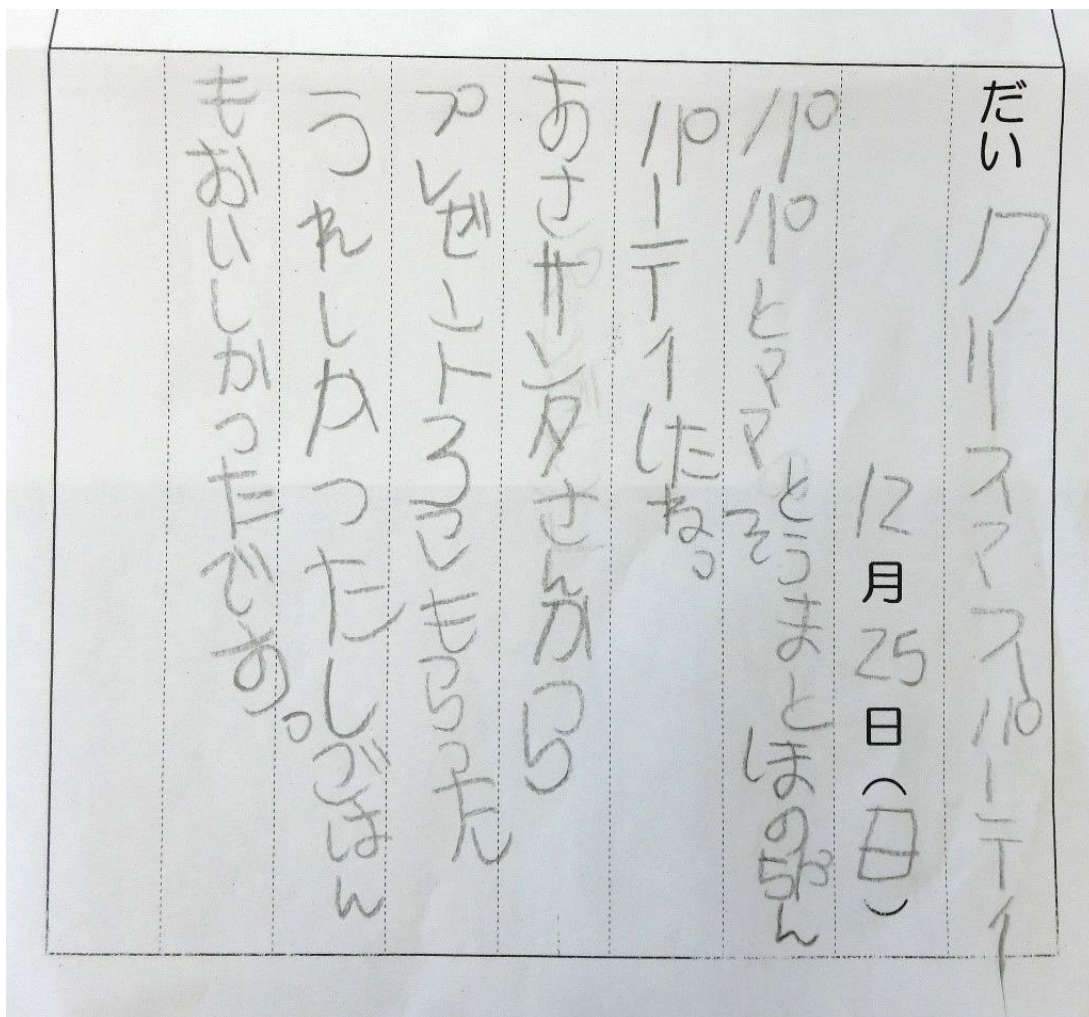 だい クリースマスパーティ
12月25日(日)
パパとママとうまとほのちゃん
パーティしたね。
あさサンタさんから
プレゼントろつもらった
うれしかったしごはん
もおいしかったです。